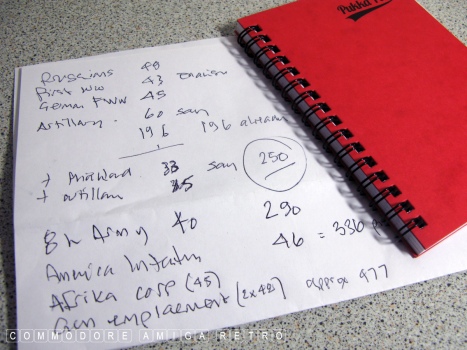 Pukka
Russians 49
First WW 43
German PWW 45
Artillary. 60 say
196 196 already
+ 33 say 250
+ Artillary
8th Army 40 290
America Infantry 46 = 336
Afrika corp (45)
Gun emplacement (2x42) approx 477
COMMODORE AMIGA RETRO